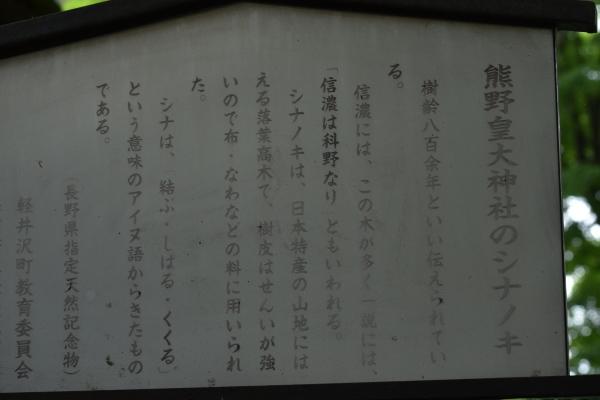 熊野皇大神社のシナノキ
樹齢八百余年といい伝えられてい
る。
信濃には、この木が多く一説には、
「信濃は科野なり」ともいわれる。
シナノキは、日本特産の山地には
える落葉高木で、樹皮はせんいが強
いので布・なわなどの料に用いられ
た。
シナは、「結ぶ・しばる・くくる」
という意味のアイヌ語からきたもの
である。
（長野県指定天然記念物）
軽井沢町教育委員会